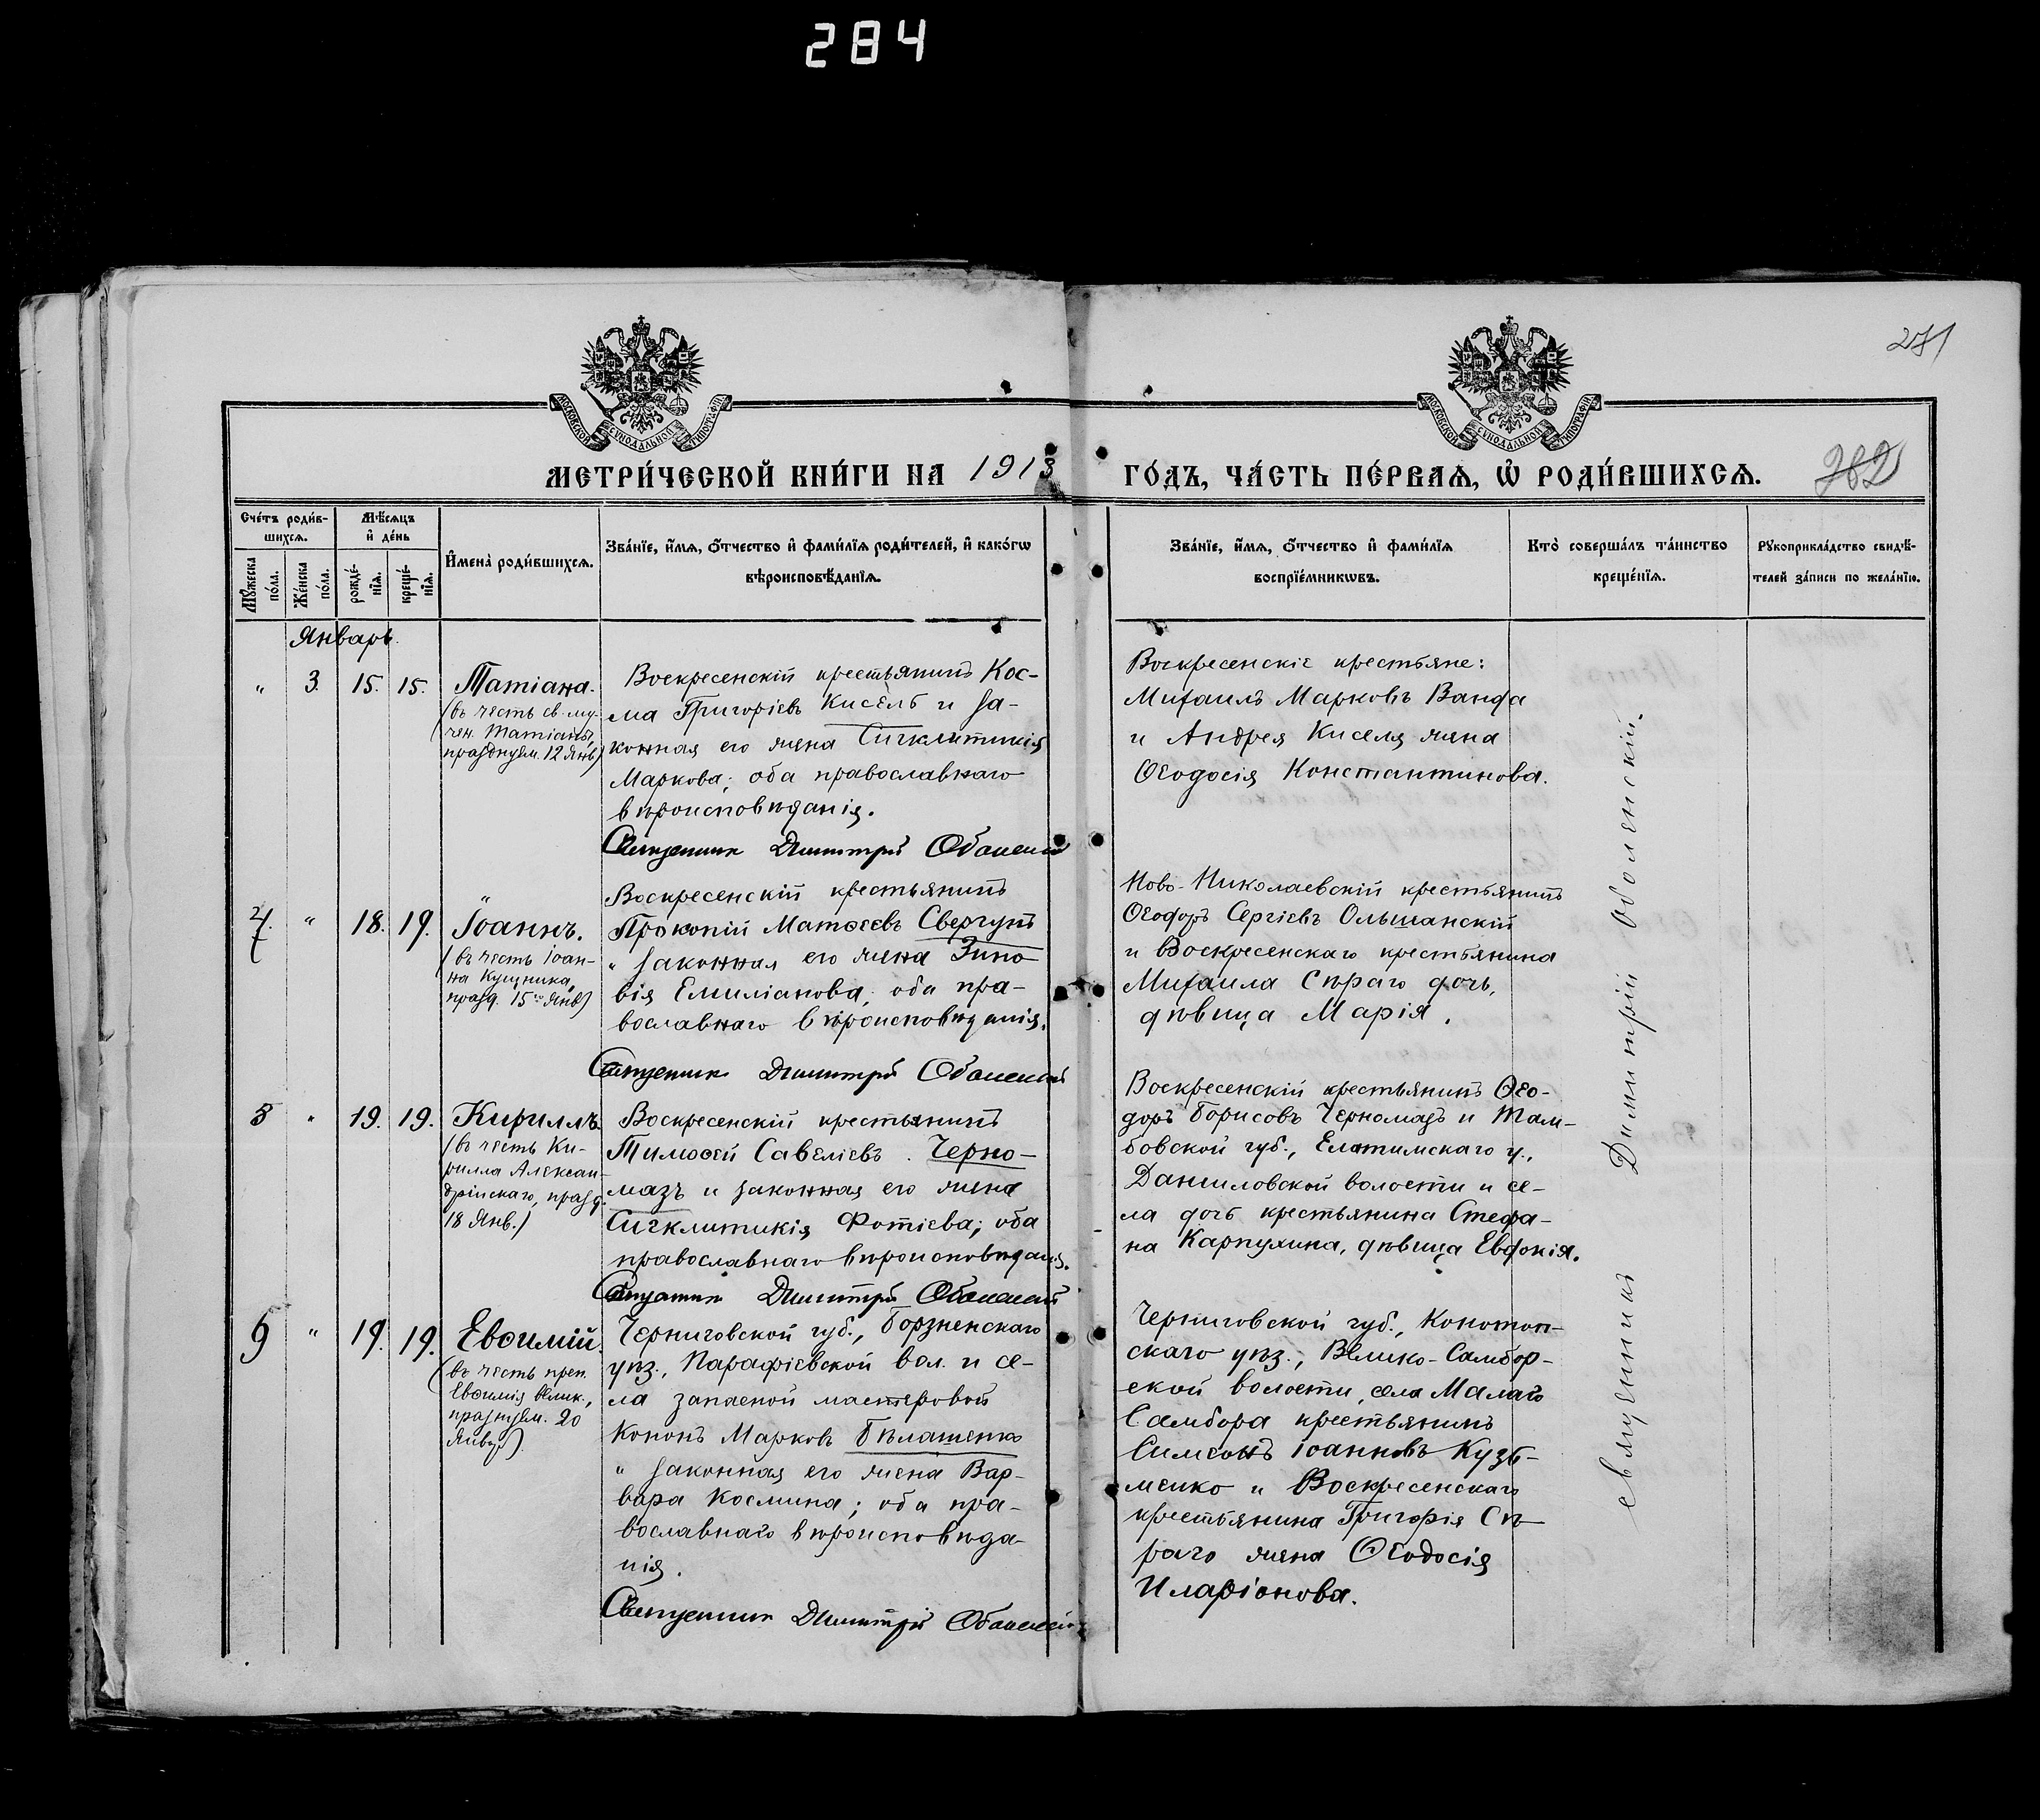 284
271
МОСКОВСКОЙ СѴНОДАЛЬНОЙ ТИПОГРАФІИ
МОСКОВСКОЙ СѴНОДАЛЬНОЙ ТИПОГРАФІИ
МЕТРИ́ЧЕСКОЙ КНИ́ГИ НА 1913 ГО́ДЪ, ЧА́СТЬ ПЕ́РВАѦ, Ѡ҆ РОДИ́ВШИХСѦ.
382
Сче́тъ роди́в-
шихсѧ.
Мꙋ́жеска по́ла.
Же́нска по́ла.
Мѣ́сѧцъ и҆ де́нь
рожде́-нїѧ.
креще́-нїѧ.
И҆мена̀ роди́вшихсѧ.
Зва́нїе, и҆́мѧ, ѻ҆́тчество и҆ фами́лїѧ роди́телей, и҆ како́гѡ
вѣроисповѣ́данїѧ.
Зва́нїе, и҆́мѧ, ѻ҆́тчество и҆ фами́лїѧ
воспрїе́мникѡвъ.
Кто̀ соверша́лъ та́инство
креще́нїѧ.
Рꙋкоприкла́дство свидѣ́-
телей за́писи по жела́нїю.
Январь.
" 3. 15. 15. Татіана.
(въ честь св. му-
чен. Татіаны,
празднуем. 12 Янв.)
Воскресенскій крестьянинъ Кос-
ма Григоріевъ Кисель и за-
конная его жена Сигклитикія
Маркова; оба православнаго
вѣроисповѣданія.
Священник Димитрій Оболенскій
Воскресенскіе крестьяне:
Михаилъ Марковъ Ванда
и Андрея Киселя жена
Ѳеодосія Константинова.
4. " 18. 19. Іоаннъ.
(въ честь Іоан-
на Кущника,
празд. 15го Янв.)
Воскресенскій крестьянинъ
Прокопій Матѳеевъ Свергунъ
и законная его жена Зино
вія Емиліанова; оба пра-
вославнаго вѣроисповѣданія.
Священник Димитрій Оболенскій
Ново-Николаевскій крестьянинъ
Ѳеодоръ Сергіевъ Ольшанскій
и Воскресенскаго крестьянина
Михаила Сѣраго дочь,
дѣвица Марія.
5 " 19. 19. Кириллъ
(въ честь Ки-
рилла Алексан-
дрійскаго, празд.
18 Янв.)
Воскресенскій крестьянинъ
Тимоѳей Савеліевъ Черно-
мазъ и законная его жена
Сигклитикія Фотіева; оба
православнаго вѣроисповѣданія.
Священник Димитрій Оболенскій
Воскресенскій крестьянинъ Ѳео-
доръ Борисовъ Черномазъ и Там-
бовской губ., Елатимскаго у.,
Даниловской волости и се-
ла дочь крестьянина Стефа-
на Карпухина, дѣвица Евдокія.
6 " 19. 19. Евѳимій.
(въ честь преп.
Евѳимія велик.,
празднуем. 20
Январ.)
Черниговской губ., Борзненскаго
уѣз., Парафіевской вол. и се-
ла запасной мастеровой
Кононъ Марковъ Бѣлашенко
и законная его жена Вар-
вара Космина; оба пра-
вославнаго вѣроисповѣда-
нія.
Священник Димитрій Оболенскій
Черниговской губ., Конотоп-
скаго уѣз., Велико-Самбор-
ской волости, села Малаго
Самбора крестьянинъ
Симеонъ Іоанновъ Кузь-
менко и Воскресенскаго
крестьянина Григорія Сѣ-
раго жена Ѳеодосія
Иларіонова.
священникъ Димитрій Оболенскій.